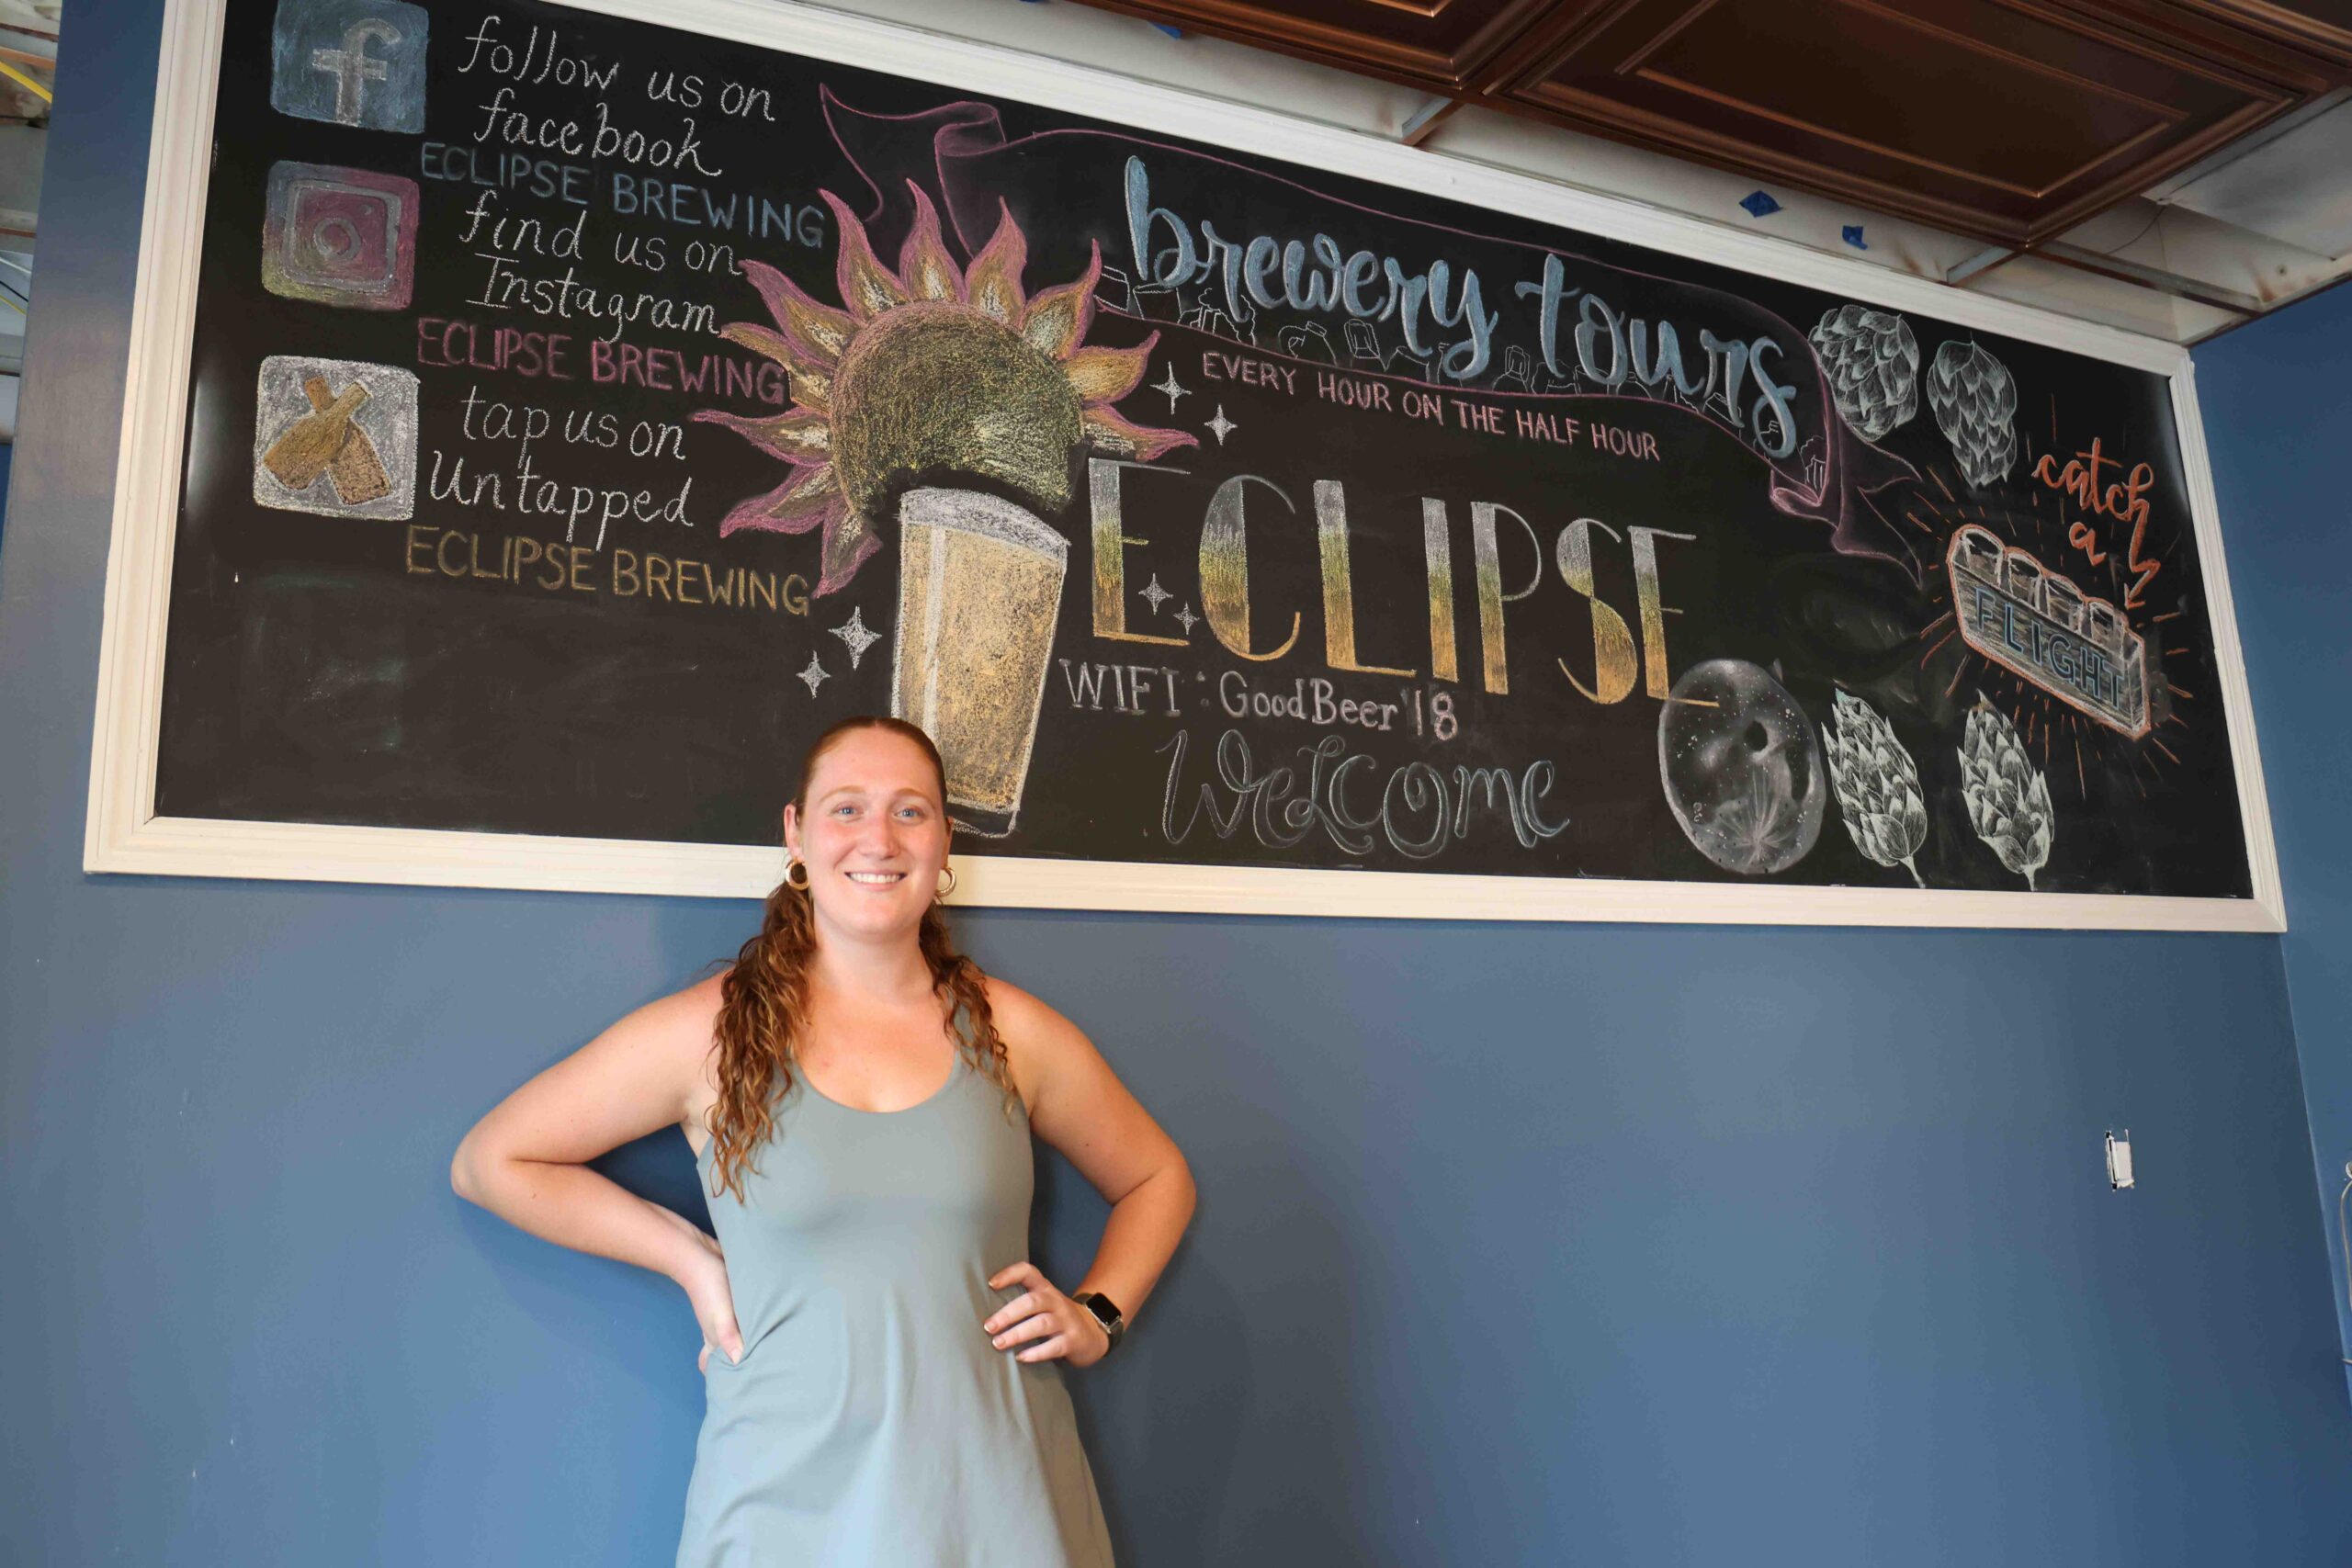 f
follow us on
facebook
ECLIPSE BREWING
find us on
Instagram
ECLIPSE BREWING
tap us on
Untapped
ECLIPSE BREWING
brewery tours
EVERY HOUR ON THE HALF HOUR
ECLIPSE
WIFI : GoodBeer'18
Welcome
catch
a
FLIGHT